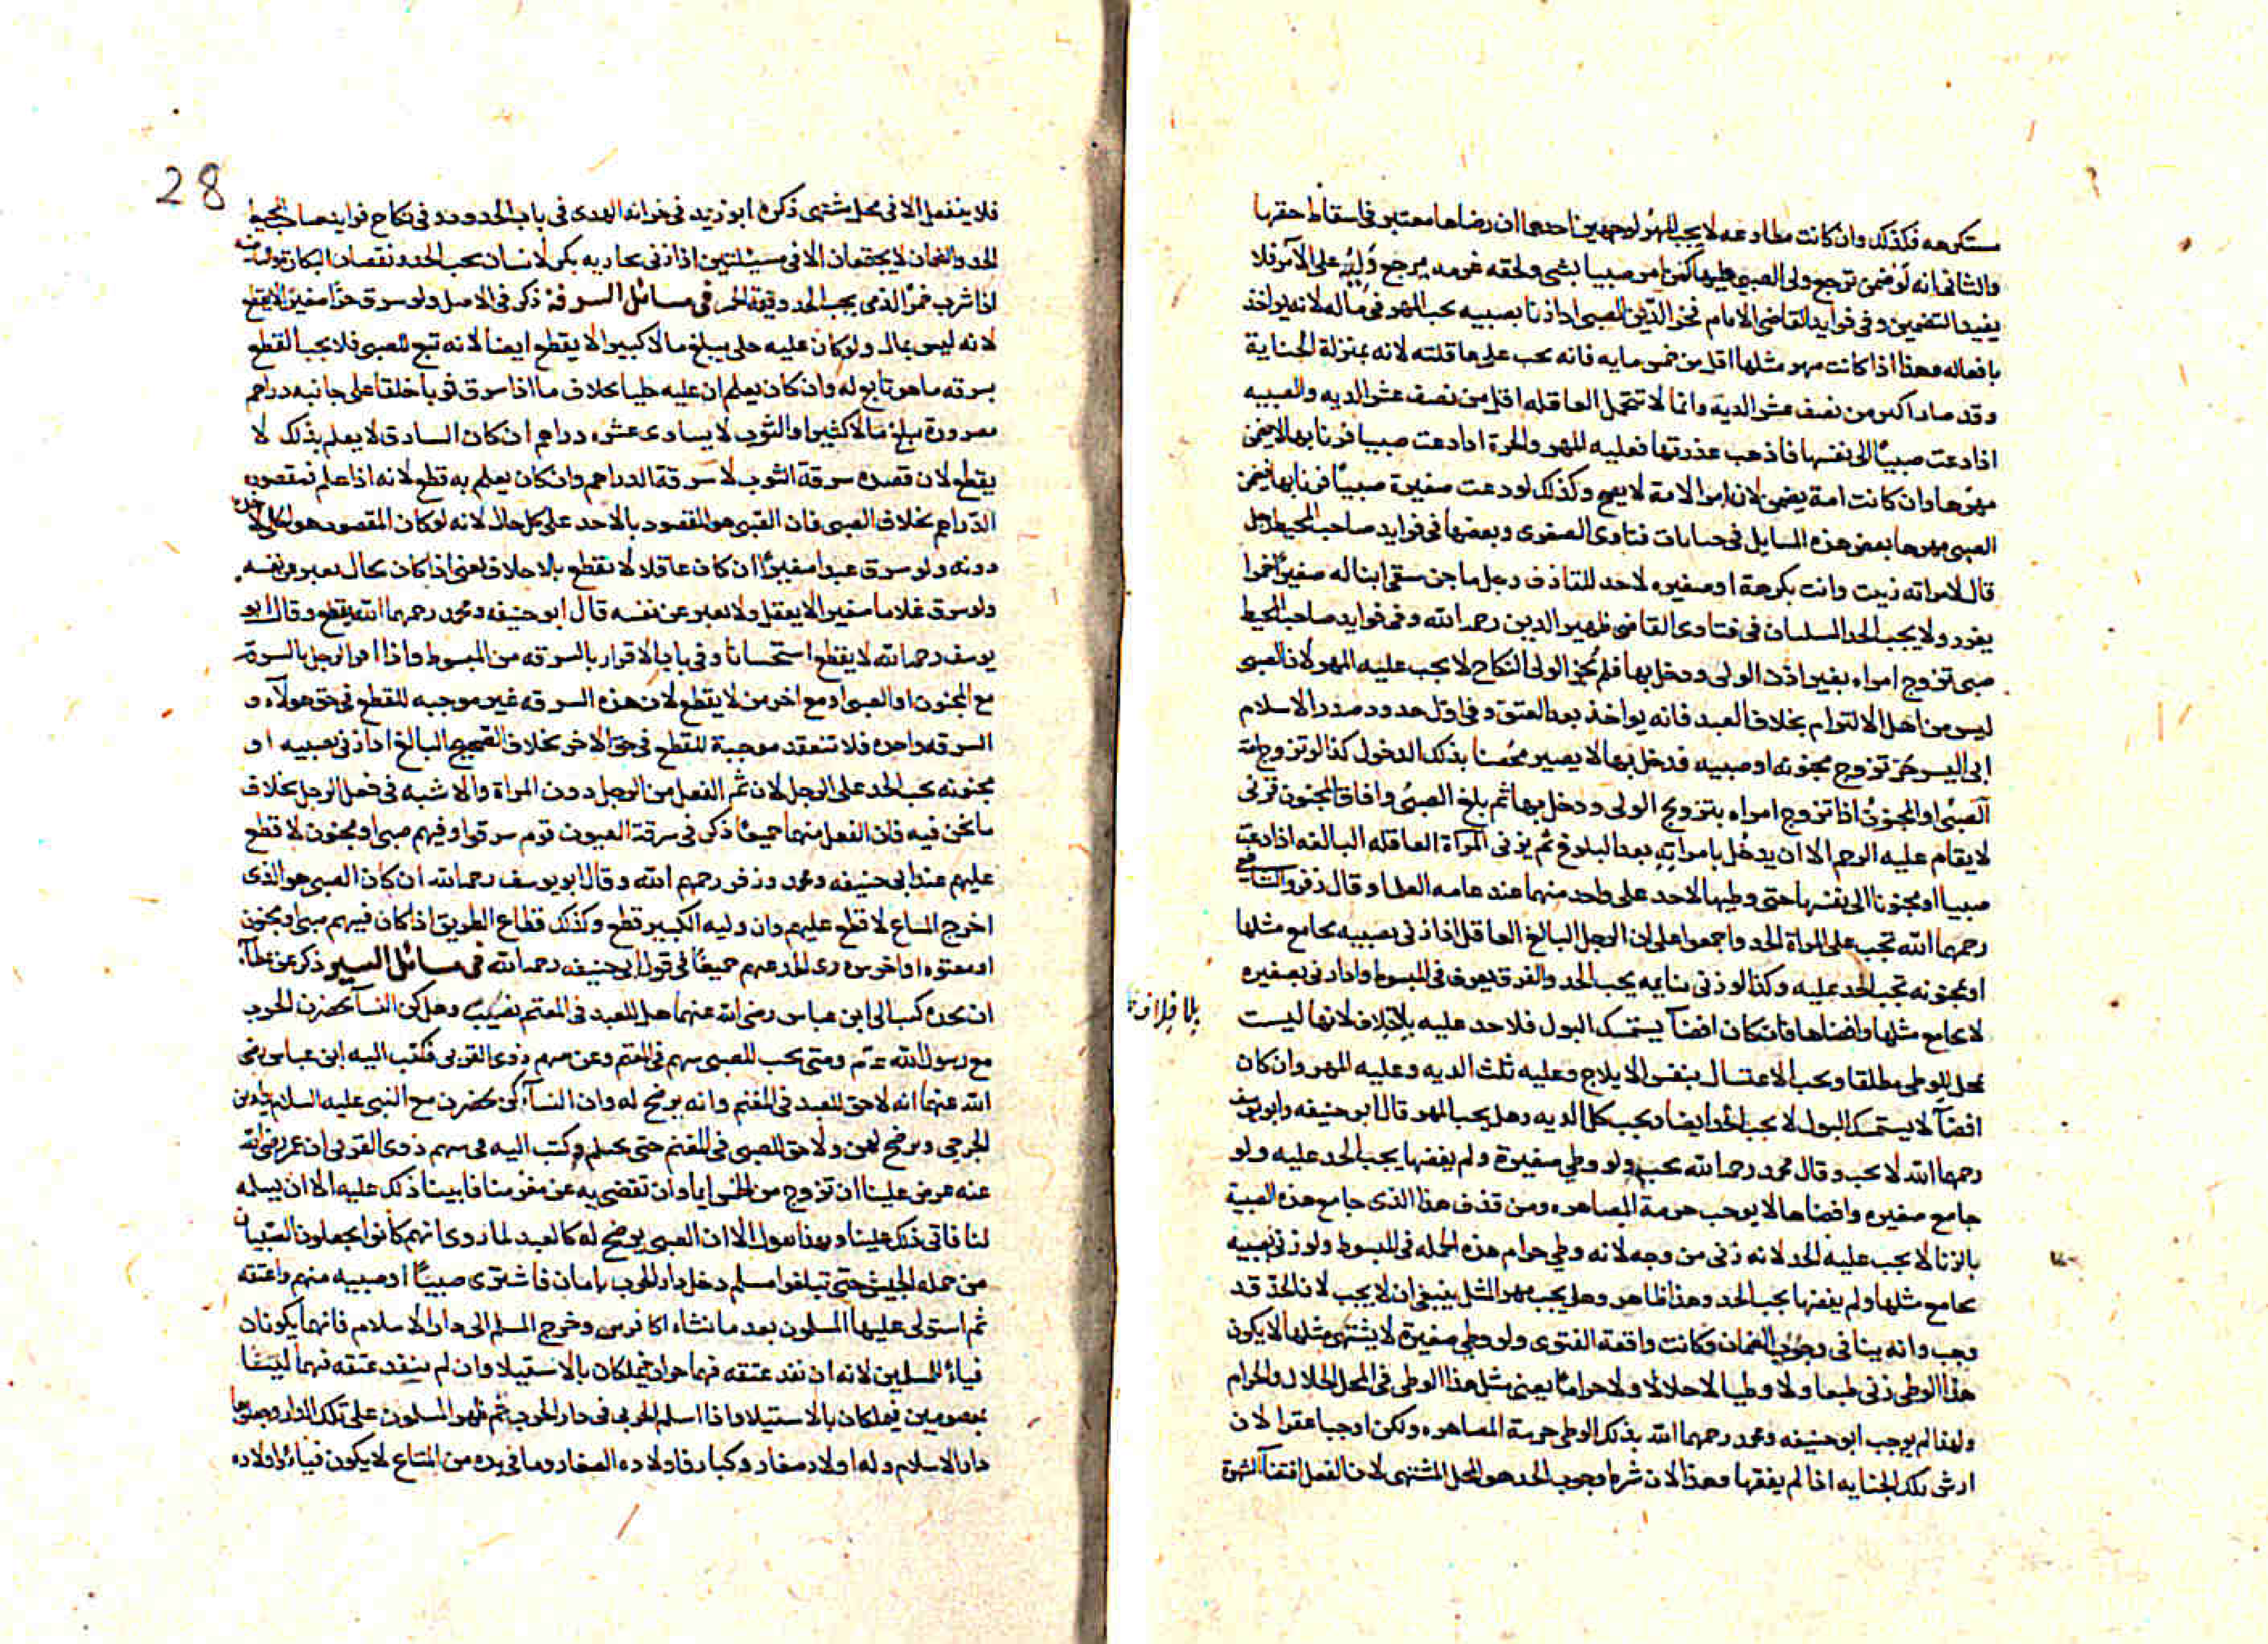 مستكرهه فكذلك وان كانت مطاوعه لا يجب المهر لوجهين احدهما ان رضاها معتبر فى اسقاط حقها
والثانى انه لو ضمن ترجع ولى الصبى عليها كمن امر صبيا بشى ولحقه غرم يرجع وليه على الآمر فلا
يفيد التضمين وفى فوايد القاضى الامام فخر الدين الصبى اذا زنا بصبيه يجب المهر فى ماله لانه يواخذ
بافعاله وهذا اذا كانت مهر مثلها اقل من خمس مايه فانه يجب على عاقلته لانه بمنزلة الجناية
وقد صار اكثر من نصف عشر الديه وانما لا تتحمل العاقله اقل من نصف عشر الديه والصبيه
اذا دعت صبيًا الى نفسها فاذهب عذرتها فعليه المهر والحرة اذا دعت صبيا فزنا بها لا يضمن
مهرها وان كانت امة يضمن لان امر الامة لا يصح وكذلك لو دعت صغيرة صبيًا فزنا بها يضمن
الصبى مهرها بعض هذه المسايل فى جنايات فتاوى الصغرى وبعضها فى فوايد صاحب المحيط رجل
قال لامراته زنيت وانت بكرهة او صغيره لا حد للقاذف رجل ماجن سقى ابنا له صغيرًا خمرا
يعزر ولا يجب الحد المسلمان فى فتاوى القاضى ظهير الدين رحمه الله وفى فوايد صاحب المحيط
صبى تزوج امراه بغير اذن الولى ودخل بها فلم يجز الولى النكاح لا يجب عليه المهر لان الصبى
ليس من اهل الالتزام بخلاف العبد فانه يواخذ بعد العتق وفى اول حدود صدر الاسلام
ابى اليسر حرّ تزوج مجنونه او صبيه فدخل بها لا يصير محصنا بذلك الدخول كذا لو تزوج امة
الصبىّ او المجنونُ اذا تزوج امراه بتزويج الولى ودخل بها ثم بلغ الصبىُ وافاق المجنون فزنى
لا يقام عليه الرجم الا ان يدخل بامراته بعد البلوغ ثم يزنى المرأة العاقله البالغه اذا دعت
صبيا او مجنونا الى نفسها حتى وطيها لا حد على واحد منهما عند عامه العلما وقال زفر والشافعى
رحمهما الله تجب على المراة الحد واجمعوا على ان الرجل البالغ العاقل اذا زنى بصبيه يجامع مثلها
او مجنونه تجب الحد عليه وكذا لو زنى بنايمه يجب الحد والفرق يعرف فى المبسوط واذا زنى بصغيره
لا يجامع مثلها وافضاها فان كان افضاً يستمسك البول فلا حد عليه بلا خلاف لانها ليست
بلا خلاف
بمحل للوطى مطلقا ويجب الاغتسال بنفس الايلاج وعليه ثلث الديه وعليه المهر وان كان
افضاً لا يستمسك البول لا يجب الحد ايضا ويجب كل الديه وهل يجب المهر قال ابو حنيفه وابو يوسف
رحمهما الله لا يجب وقال محمد رحمه الله يجب ولو وطى صغيرة ولم يفضها يجب الحد عليه ولو
جامع صغيره وافضاها لا يوجب حرمة المصاهره ومن قذف هذا الذى جامع هذه الصبية
بالزنا لا يجب عليه الحد لانه زنى من وجه لانه وطى حرام هذه الجمله فى المبسوط ولو زنى بصبيه
يجامع مثلها ولم يفضها يجب الحد وهذا ظاهر وهل يجب مهر المثل ينبغى ان لا يجب لان الحد قد
وجب وانه ينافى وجوب الضمان وكانت واقعة الفتوى ولو وطى صغيرة لا يشتهى مثلها لا يكون
هذا الوطى زنى طبعا ولا وطيا لا حلالا ولا حرامًا يعنى مثل هذا الوطى فى المحل الحلال والحرام
ولهذا لم يوجب ابو حنيفه ومحمد رحمهما الله بذلك الوطى حرمة المصاهره ولكن اوجبا عقرا لان
ارش تلك الجنايه اذا لم يفضها وهذا لان شرط وجوب الحد هو المحل المشتهى لان الفعل اقتضآ الشهوة
28
فلا ينفعل الا فى محل يشتهى ذكره ابو زيد فى خزانه الهدى فى باب الحدود وفى نكاح فوايد صاحب المحيط
الحد والضمان لا يجتمعان الا فى مسئلتين اذا زنى بجاريه بكر لانسان يجب الحد ونقصان البكارة
اذا شرب خمر الذمى يجب الحد وقيمة الخمر فى مسائل السرقة ذكر فى الاصل ولو سرق حرًا صغيرا لا يقطع
لانه ليس بمال ولو كان عليه حلى يبلغ مالا كبيرا لا يقطع ايضا لانه تبع للصبى فلا يجب القطع
بسرقه ما هو تابع له وان كان يعلم ان عليه حليا بخلاف ما اذا سرق ثوبا خلقا على جانبه دراهم
مصرورة يبلغ مالا كثيرا والثوب لا يساوى عشره دراهم ان كان السارق لا يعلم بذلك لا
يقطع لان قصده سرقة الثوب لا سرقة الدراهم وان كان يعلم به قطع لانه اذا علم فمقصوده
الدراهم بخلاف الصبى فان الصبى هو المقصود بالاخذ على كل حال لانه لو كان المقصود هو الحلى لاخذه
دونه ولو سرق عبدا صغيرًا ان كان عاقلا لا يقطع بلا خلاف يعنى اذا كان بحال يعبر عن نفسه
ولو سرق غلاما صغيرا لا يعقل ولا يعبر عن نفسه قال ابو حنيفه ومحمد رحمهما الله يقطع وقال ابو
يوسف رحمه الله لا يقطع استحسانا وفى باب الاقرار بالسرقه من المبسوط واذا اقر الرجل بالسرقة
مع المجنون او الصبى او مع اخرس لا يقطع لان هذه السرقه غير موجبه للقطع فى حق هولآء و
السرقه واحده فلا تنعقد موجبة للقطع فى حق الاخر بخلاف الصحيح البالغ اذا زنى بصبيه او
مجنونه يجب الحد على الرجل لان ثم الفعل من الرجل دون المراة والا شبه فى فعل الرجل بخلاف
ما نحن فيه فان الفعل منهما جميعًا ذكر فى سرقة العيون قوم سرقوا وفيهم صبى او مجنون لا قطع
عليهم عند ابى حنيفه ومحمد وزفر رحمهم الله وقال ابو يوسف رحمه الله ان كان الصبى هو الذى
اخرج المتاع لا قطع عليهم وان وليه الكبير قطع وكذلك قطاع الطريق اذا كان فيهم صبى او مجنون
او معتوه او اخرس درى الحد عنهم جميعًا فى قول ابى حنيفه رحمه الله فى مسائل السير ذكر عن عطآء
ان نجده كتب الى ابن عباس رضى الله عنهما هل للعبد فى المغنم نصيب وهل كن النسآ يحضرن الحرب
مع رسول الله عم ومتى يجب للصبى سهم فى المغنم وعن سهم ذوى القربى فكتب اليه ابن عباس رضى
الله عنهما انه لا حق للعبد فى المغنم وانه يرضخ له وان النسآ كن يحضرن مع النبى عليه السلام يداوين
الجرحى ويرضخ لهن ولا حق للصبى فى المغنم حتى يحتلم وكتب اليه فى سهم ذوى القربى ان عمر رضى الله
عنه عرض علينا ان تزوج من الخمس ايمانا وان نقضى به عن مغرمنا فابينا ذلك عليه الا ان يسلمه
لنا فاتى ذلك علينا وبهذا نقول الا ان الصبى يرضخ له كالعبد لما روى انهم كانوا يجعلون الصبيان
من جمله الجيش حتى تبلغوا مسلم دخل دار الحرب بامان فاشترى صبيًا او صبيه منهم واعتقه
ثم استولى عليها المسلمون بعد ما نشاء كافرين وخرج المسلم الى دار الاسلام فانهما يكونان
فيأً للمسلمين لانه ان نفذ عتقه فهما حران فيملكان بالاستيلا وان لم ينفد عتقه فهما ليسا
بمعصومين فيملكان بالاستيلا واذا اسلم الحربى فى دار الحرب ثم ظهر المسلمون على تلك الدار وجعلوها
دار الاسلام وله اولاد صغار وكبار فاولاده الصغار وما فى يده من المتاع لا يكون فيأً واولاده